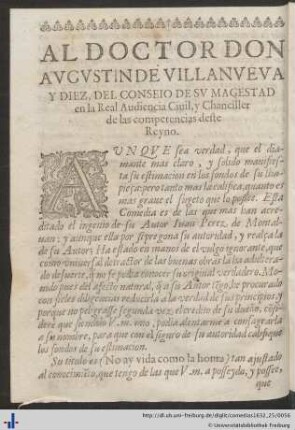 AL DOCTOR DON
AVGVSTIN DE VILLANVEVA
Y DIEZ, DEL CONSEIO DE SV MAGESTAD
en la Real Audiencia Ciuil, y Chanciller
de las competencias deste
Reyno.
AVNQVE sea verdad, que el dia-
mante mas claro, y solido manifies-
ta su estimacion en los fondos de su lim-
pieça; pero tanto mas la califica, quanto es
mas graue el sugeto que lo possee. Esta
Comedia es de las que mas han acre-
ditado el ingenio de su Autor Iuan Perez de Montal-
uan; y aunque ella por si pregona su autoridad, y realça la
de su Autor; Ha estado en manos de el vulgo ignorante, que
como vniuersal destrador de las buenas obras la ha adultera-
do de suerte, que no se podia conocer su original verdadero. Mo-
uido pues del afecto natural, que a su Autor tengo, he procurado
con fieles diligencias reducirla a la verdad de sus principios, y
porque no peligrasse segunda vez, el credito de su dueño, consi-
derè que su nombre de V.m. vno, podia alentarme a consagrarla
a su nombre, para que con el seguro de su autoridad califique
los fondos de su estimacion.
Su titulo es (No ay vida como la honra) tan ajustado
al conocimiento, que tengo de las que V.m. a posseydo, y possee,
que
http://dl.ub.uni-freiburg.de/diglit/comedias1632_25/0056
© Universitätsbibliothek Freiburg